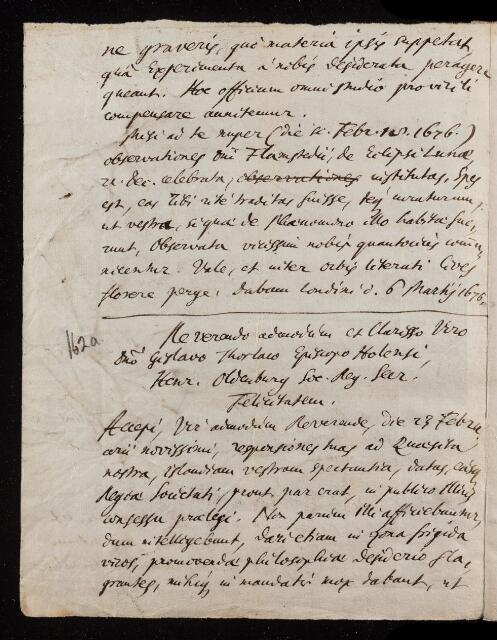 ne graveris, quò materia ipsis suppetat,
quâ Experimenta à nobis desiderata peragere
queant. Hoc officium omni studio pro virili
compensare annitemur.
Misi ad te nuper (die Febr. 1676.)
observationes Dni Flamstedii, de Eclipsi Lunæ,
Dec. celebrata, observationes institutas. Spes
est, eas Tibi ritè traditas fuisse, curaturum,
ut vestra, si quæ de Phænomeno illo habita fue,
runt, observata vicissim nobis quantociùs comu
nicentur. Vale, et inter orbis literati Cives
florere perge. Dabam Londini d. 6 Martij 1676.
162a
Reverendo admodùm et Clarisso Viro
Dno Thorlaco Episcopo Holensi,
Henr. Oldenburg Soc. Reg. Secr.
Felicitatem.
Accepi, Vir admodùm Reverende, die 23 Febru
arii novissimi, responsiones tuas ad Quæsita
nostra, Islandiam vestram spectantia, easq
Regia Societati, prout par erat, in publico illius
consessu prælegi. Non parùm illi afficiebantur,
dum intelligebant, dari etiam in Zona frigida
viros, promovendæ philosophiæ desiderio fla,
grantes, mihiq in mandatis mox dabant, ut